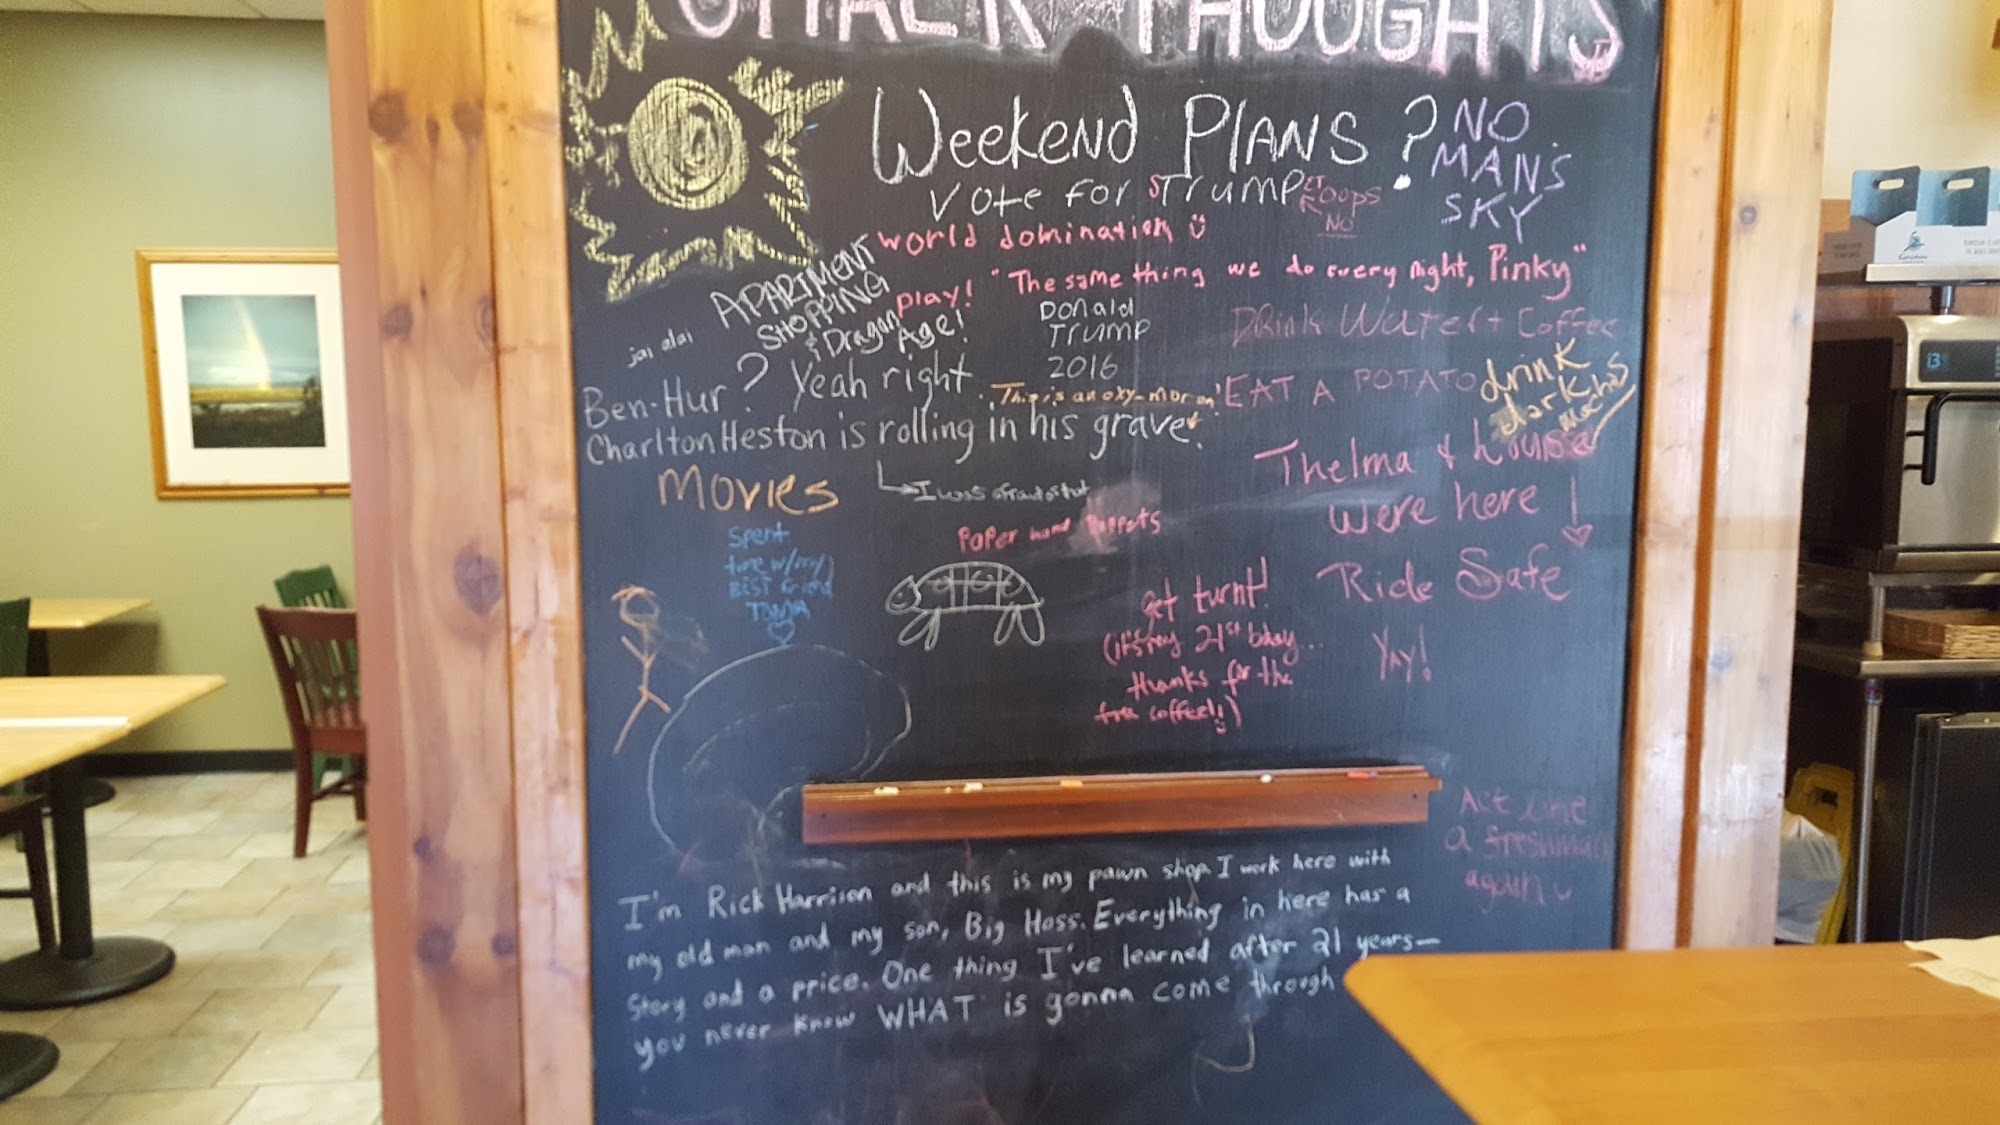 CHALK THOUGHTS
Weekend Plans?
NO
MAN's
SKY
Vote for sTrumpet
oops
NO
world domination
"The same thing we do every night, Pinky"
APARTMENT
SHOPPING
& Dragon
Age!
play!
Donald
Trump
2016
Drink Water + Coffee
jai alai
Ben-Hur? Yeah right.
This is an oxy-moron!
EAT A POTATO
drink
dark
mochas
Charlton Heston is rolling in his grave.
I was afraid of that
Movies
Thelma & Louise
were here!
Ride Safe
Yay!
Paper hand Puppets
Spent
time w/my
BEST friend
get turnt!
(it's my 21st bday...
thanks for the
free coffee!)
Act like
a freshman
again
I'm Rick Harrison and this is my pawn shop. I work here with
my old man and my son, Big Hoss. Everything in here has a
story and a price. One thing I've learned after 21 years—
you never know WHAT is gonna come through
i3